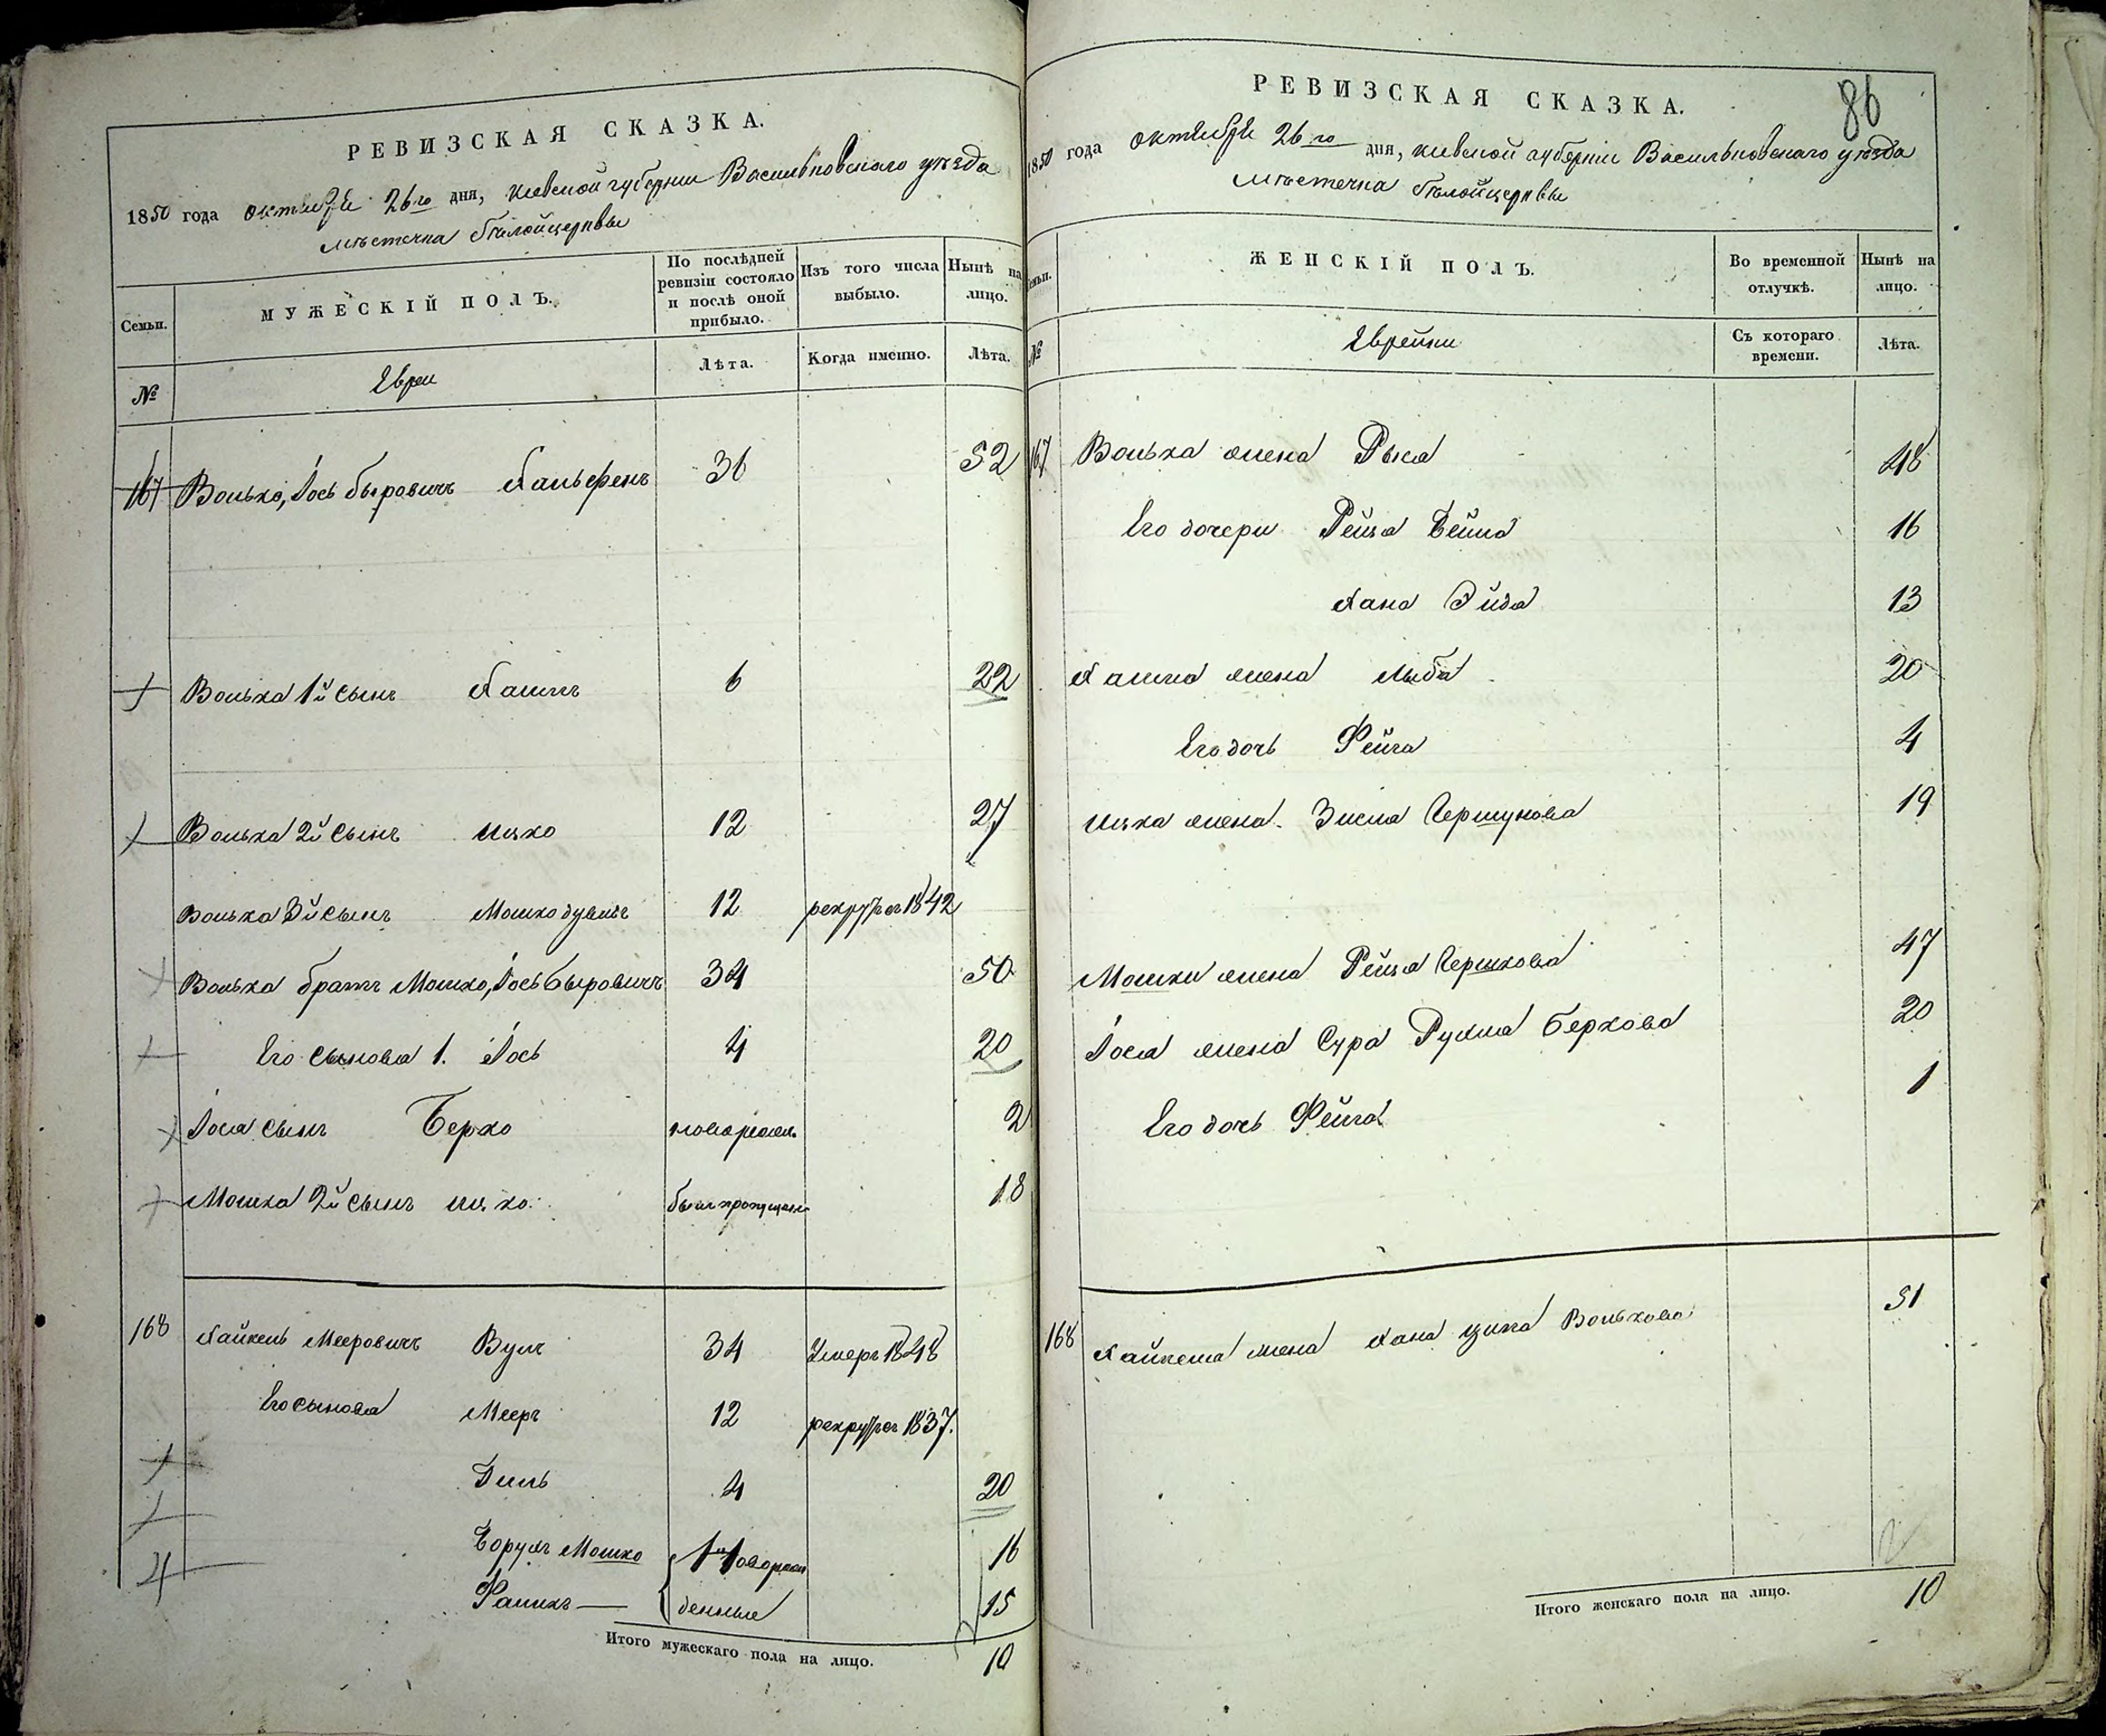 РЕВИЗСКАЯ СКАЗКА.
1850 года октября 26го дня, Киевской губернии Васильковского уѣзда
мѣстечка Бѣлойцеркви
Семьи.
МУЖЕСКІЙ ПОЛЪ.
По послѣдней ревизіи состояло и послѣ оной прибыло.
Изъ того числа выбыло.
Нынѣ на лицо.
№
Евреи
Лѣта.
Когда именно.
Лѣта.
167 Волько, Іось Быровичъ 36 52
Волька 1й сынъ Хаимъ 6 22
Волька 2й сынъ Ицко 12 27
Волька 3й сынъ Мошко Дувидъ 12 рекрутъ 1842
Волька братъ Мошко, Іось Быровичъ 34 50
Его сыновья 1. Іось 4 20
Іося сынъ Берко новорожд. 2
Мошка 2й сынъ Ицко былъ пропущенъ 18
168 Хайкель Мееровичъ Вулъ 34 Умеръ 1848
Его сыновья Мееръ 12 рекрутъ 1837.
4 20
Борухъ Мошко новорож 16
денные 15
Итого мужескаго пола на лицо. 10
РЕВИЗСКАЯ СКАЗКА. 86
1850 года октября 26го дня, Киевской губерніи Васильковскаго уѣзда
мѣстечка Бѣлойцеркви
Семьи.
ЖЕНСКІЙ ПОЛЪ.
Во временной отлучкѣ.
Нынѣ на лицо.
№
Еврейки
Съ котораго времени.
Лѣта.
167 Волька жена Рыся 48
Его дочери Рейзя Бейла 16
Хана Эйда 13
Хаима жена Либа 20
Его дочь Фейга 4
Ицка жена Зисля Гершунова 19
Мошки жена Рейзя Гершкова 47
Іося жена Сура Рухля Беркова 20
Его дочь Фейга 1
168 Хайкеля жена Хана Ципа Волькова 51
Итого женскаго пола на лицо. 10